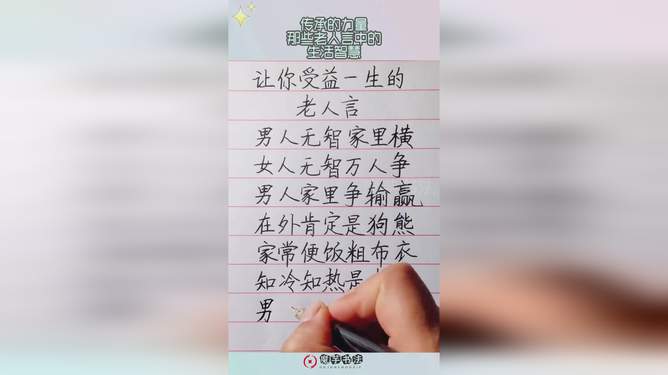 传承的力量
那些老人言中的
生活智慧
让你受益一生的
老人言
男人无智家里横
女人无智万人争
男人家里争输赢
在外肯定是狗熊
家常便饭粗布衣
知冷知热是
男